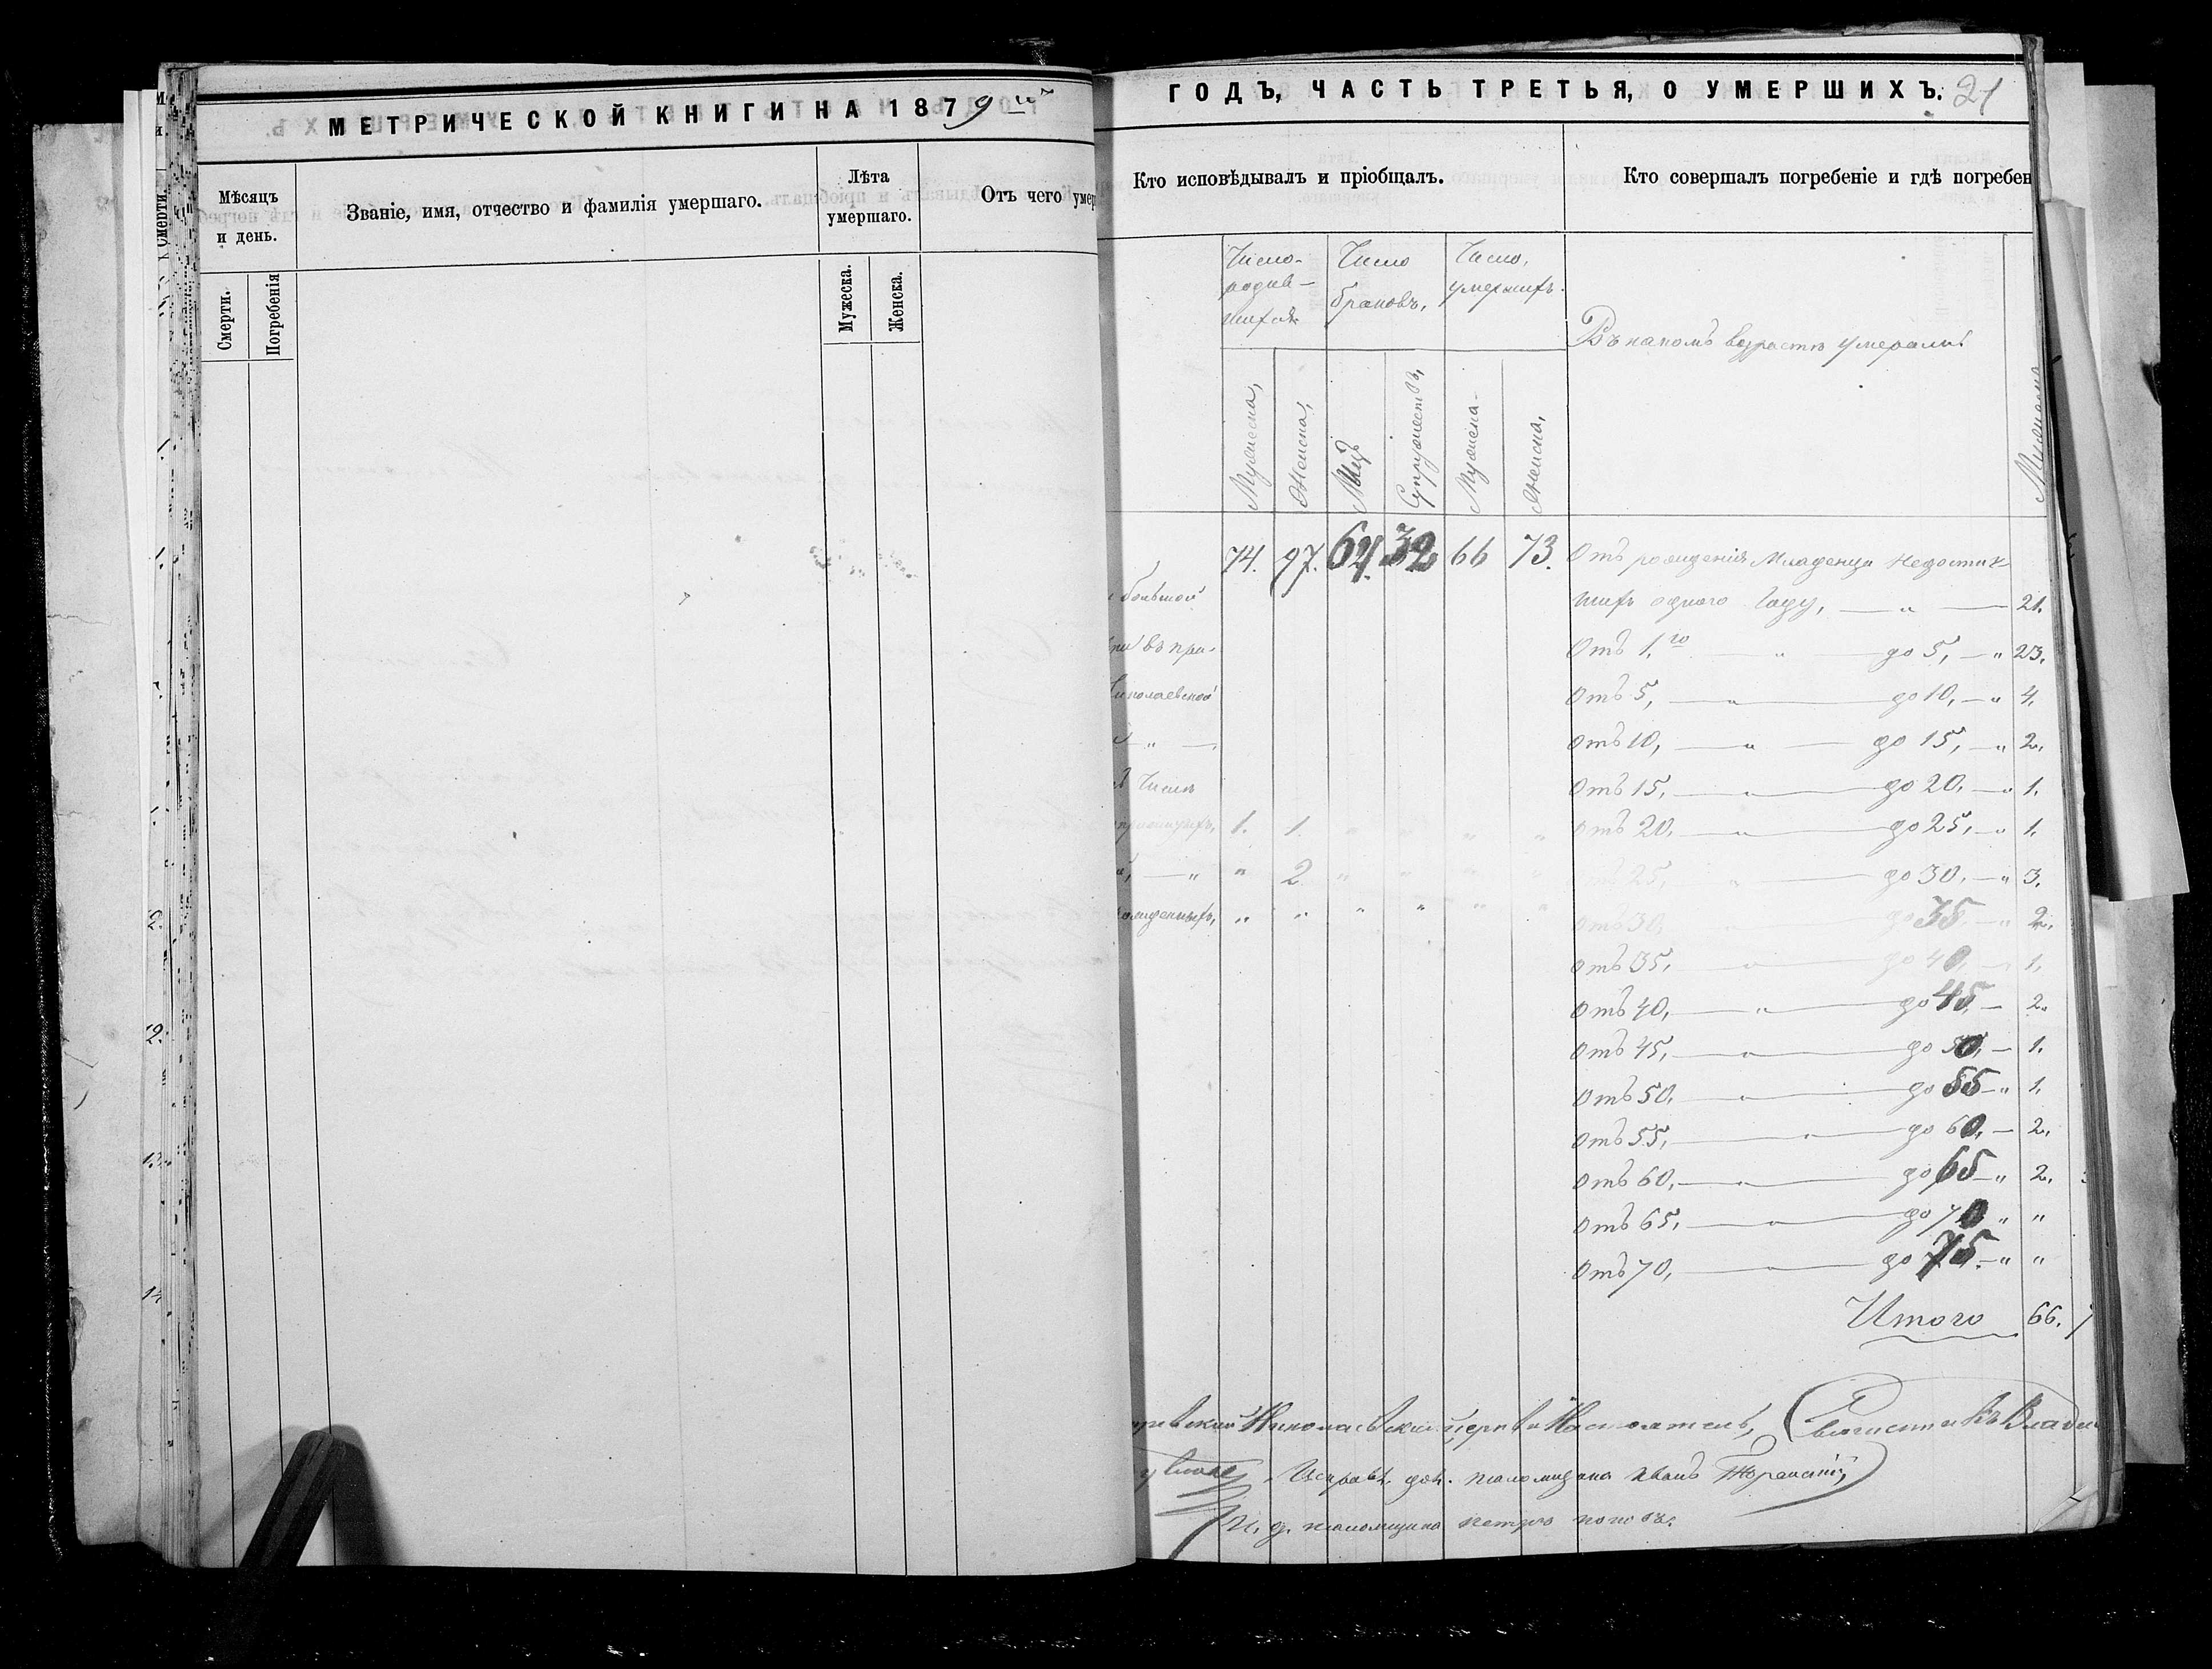 МЕТРИЧЕСКОЙ КНИГИ НА 1879 ый
Мѣсяцъ и день.
Званіе, имя, отчество и фамилія умершаго.
Лѣта умершаго.
Отъ чего умер
Смерти.
Погребенія
Мужеска.
Женска.
ГОДЪ, ЧАСТЬ ТРЕТЬЯ, О УМЕРШИХЪ. 21
Кто исповѣдывалъ и пріобщалъ.
Кто совершалъ погребеніе и гдѣ погребен
Число родившихся
Число браковъ,
Число, умершихъ.
Въ какомъ возрастѣ умерали
Мужеска,
Женска,
Лицъ
Супружествъ,
Мужеска
Женска,
Мужеска
74. 97. 64. 32 66 73. Отъ рожденія Младенца Недостиг
большой шихъ одного Году, — „ — 21.
въ при- Отъ 1.го „ — до 5, — „ 23.
николаевской Отъ 5, — „ — до 10, — „ 4.
— „ — Отъ 10, — „ — до 15, — „ 2.
Числѣ Отъ 15, — „ — до 20. — „ 1.
1. 1. „ „ „ „ Отъ 20, — „ — до 25, — „ 1.
— „ „ 2 „ „ „ „ Отъ 25, „ — до 30, — „ 3.
ожденныхъ, „ „ „ „ „ „ Отъ 30, до 35, — „ 2.
Отъ 35, — „ — до 40, — 1.
Отъ 40, — „ — до 45, — 2.
Отъ 45, — „ — до 50, — 1.
Отъ 50, — „ — до 55 — „ 1.
Отъ 55, — „ — до 60, — 2.
Отъ 60, — „ — до 65 — „ 2.
Отъ 65, — „ — до 70 „ „
Отъ 70, — „ — до 75 — „ „
Итого 66. 7
Николаевской церкви Настоятель, Священникъ Влади
Исправ. дол. псаломщика Иванъ
И. д. псаломщика петръ поповъ.